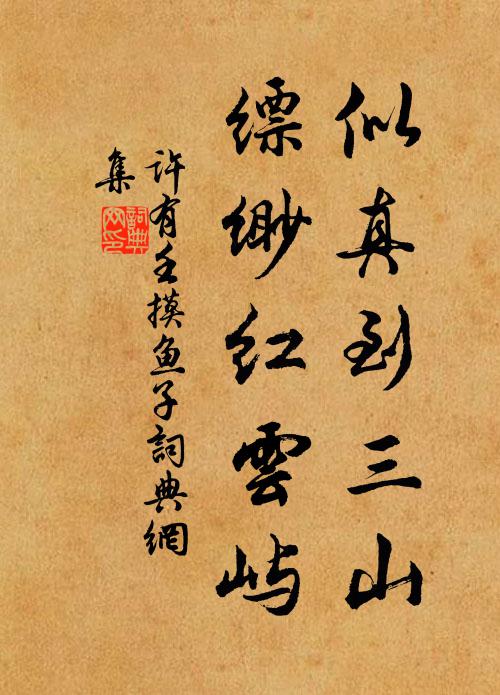 似真到三山
缥缈红雲屿
许有壬摸鱼子詞典網
集
詞典
网印